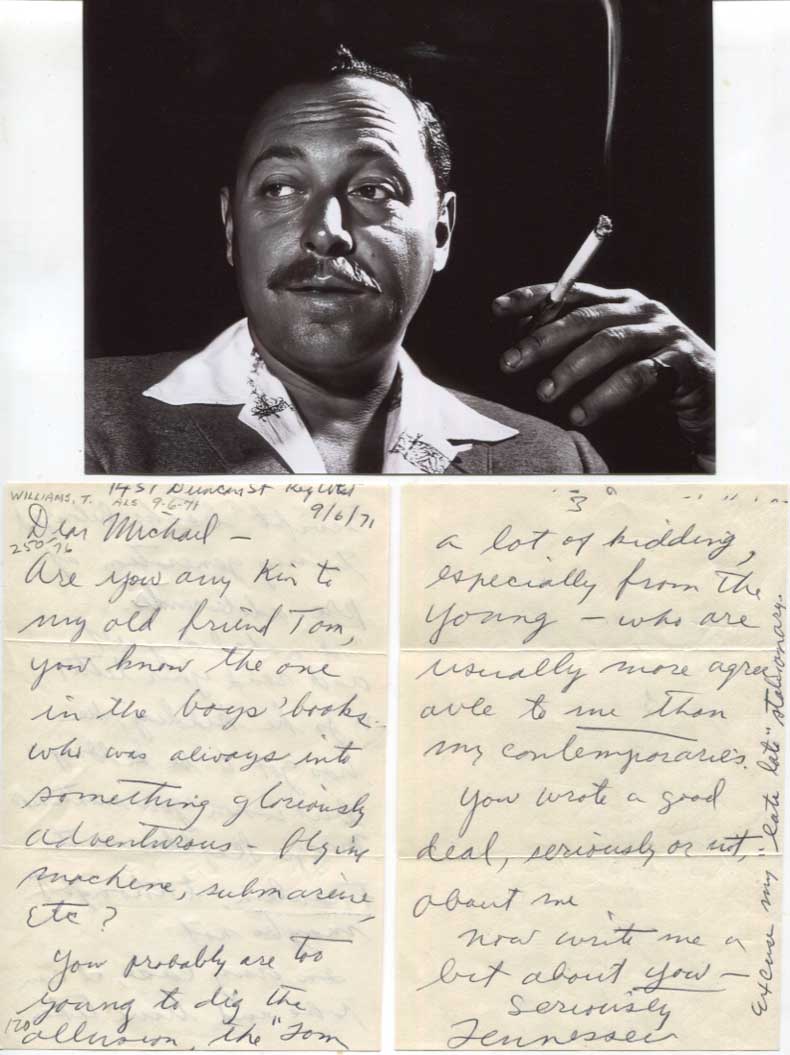 WILLIAMS, T.
ALS 9-6-71
1431 Duncan St Key West
9/6/71
Dear Michael —
250-76
Are you any kin to
my old friend Tom,
you know the one
in the boys' books
who was always into
something gloriously
adventurous — flying
machine, submarine
etc?
You probably are too
young to dig the
120
allusion, the "Tom
3
a lot of kidding,
especially from the
young — who are
usually more agree
able to me than
my contemporaries.
You wrote a good
deal, seriously or not,
about me
Now write me a
bit about you —
Seriously
Tennessee
Excuse my "late late" stationary.